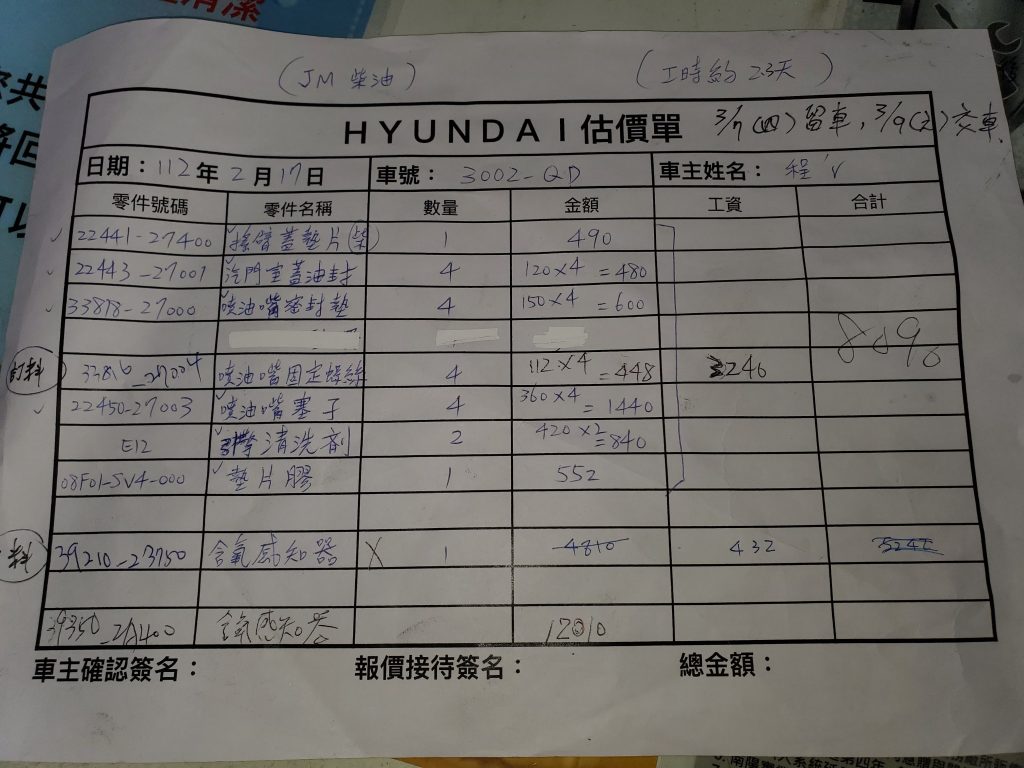 (JM 柴油) (工時約 2.3天)
HYUNDAI估價單 3/7(四)留車,3/9( )交車
日期:112年 2月17日 車號: 3002-QD 車主姓名: 程
零件號碼 零件名稱 數量 金額 工資 合計
22441-27400 搖臂蓋墊片(柴) 1 490
22443-27001 汽門室蓋油封 4 120×4=480
33878-27000 噴油嘴密封墊 4 150×4=600
8896
訂料 噴油嘴固定螺絲 4 112×4=448 3246
22450-27003 噴油嘴塞子 4 360×4=1440
E12 清洗劑 2 420×2=840
08F01-SV4-000 墊片膠 1 552
料 39210-23750 含氧感知器 X 1 4810 432 5242
39350-2A400 含氧感知器 12010
車主確認簽名: 報價接待簽名: 總金額: